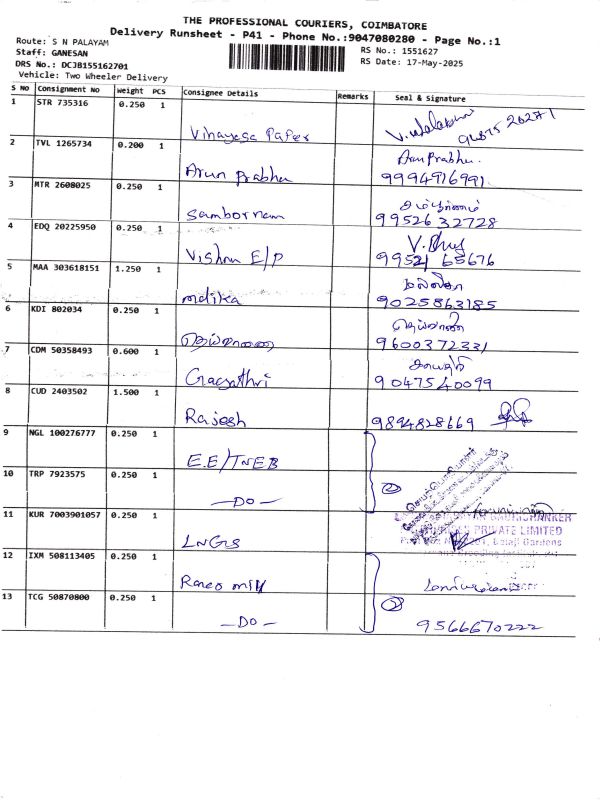 THE PROFESSIONAL COURIERS, COIMBATORE
Delivery Runsheet - P41 - Phone No.:9047080280 - Page No.:1
Route: S N PALAYAM
Staff: GANESAN
DRS No.: DCJB155162701
Vehicle: Two Wheeler Delivery
RS No.: 1551627
RS Date: 17-May-2025
S No Consignment No Weight PCS Consignee Details Remarks Seal & Signature
1 STR 735316 0.250 1
Vinayaga Paper
2 TVL 1265734 0.200 1
Arun prabhu Arun Prabhu.
9994916991
3 MTR 2608025 0.250 1
Sambornam 9952632728
4 EDQ 20225950 0.250 1
Vishnu E/P 9952165676
5 MAA 303618151 1.250 1
mallika மல்லிகா
9025863185
6 KDI 802034 0.250 1
தெய்வானை தெய்வானை
9600372331
7 CDM 50358493 0.600 1
Gayathri காயத்ரி
9047540099
8 CUD 2403502 1.500 1
Rajesh 9894828669
9 NGL 100276777 0.250 1
E.E/TNEB
10 TRP 7923575 0.250 1
—DO— 2
11 KUR 7003901057 0.250 1
LNGS PRIVATE LIMITED
12 IXM 508113405 0.250 1
13 TCG 50870800 0.250 1
—DO— 2 9566670222